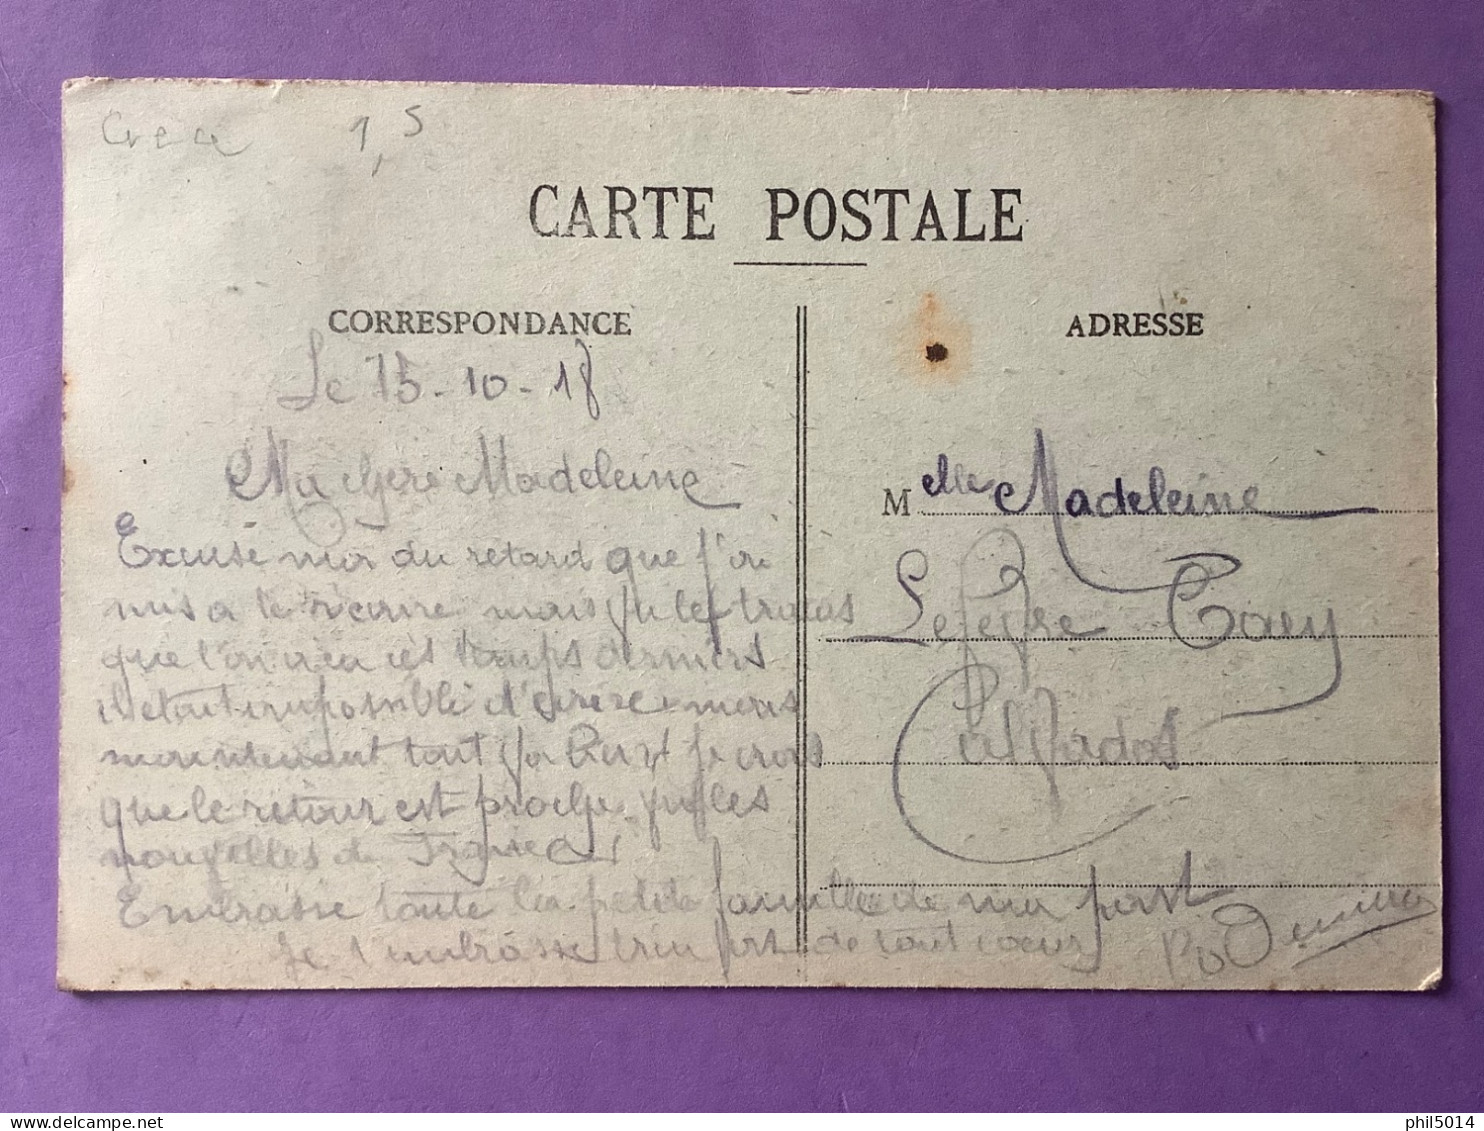 1,5
CARTE POSTALE
CORRESPONDANCE
ADRESSE
Le 15-10-18
Ma chère Madeleine
Excuse moi du retard que j'ai
mis a mais
que l'on a eu ces temps derniers
il etait impossible d'ecrire mais
maintenant tout je crois
que le retour est proche les
nouvelles de
Embrasse toute la petite famille de ma part
Je t'embrasse bien fort de tout coeur
Melle Madeleine
Lefevre
Calvados
phil5014